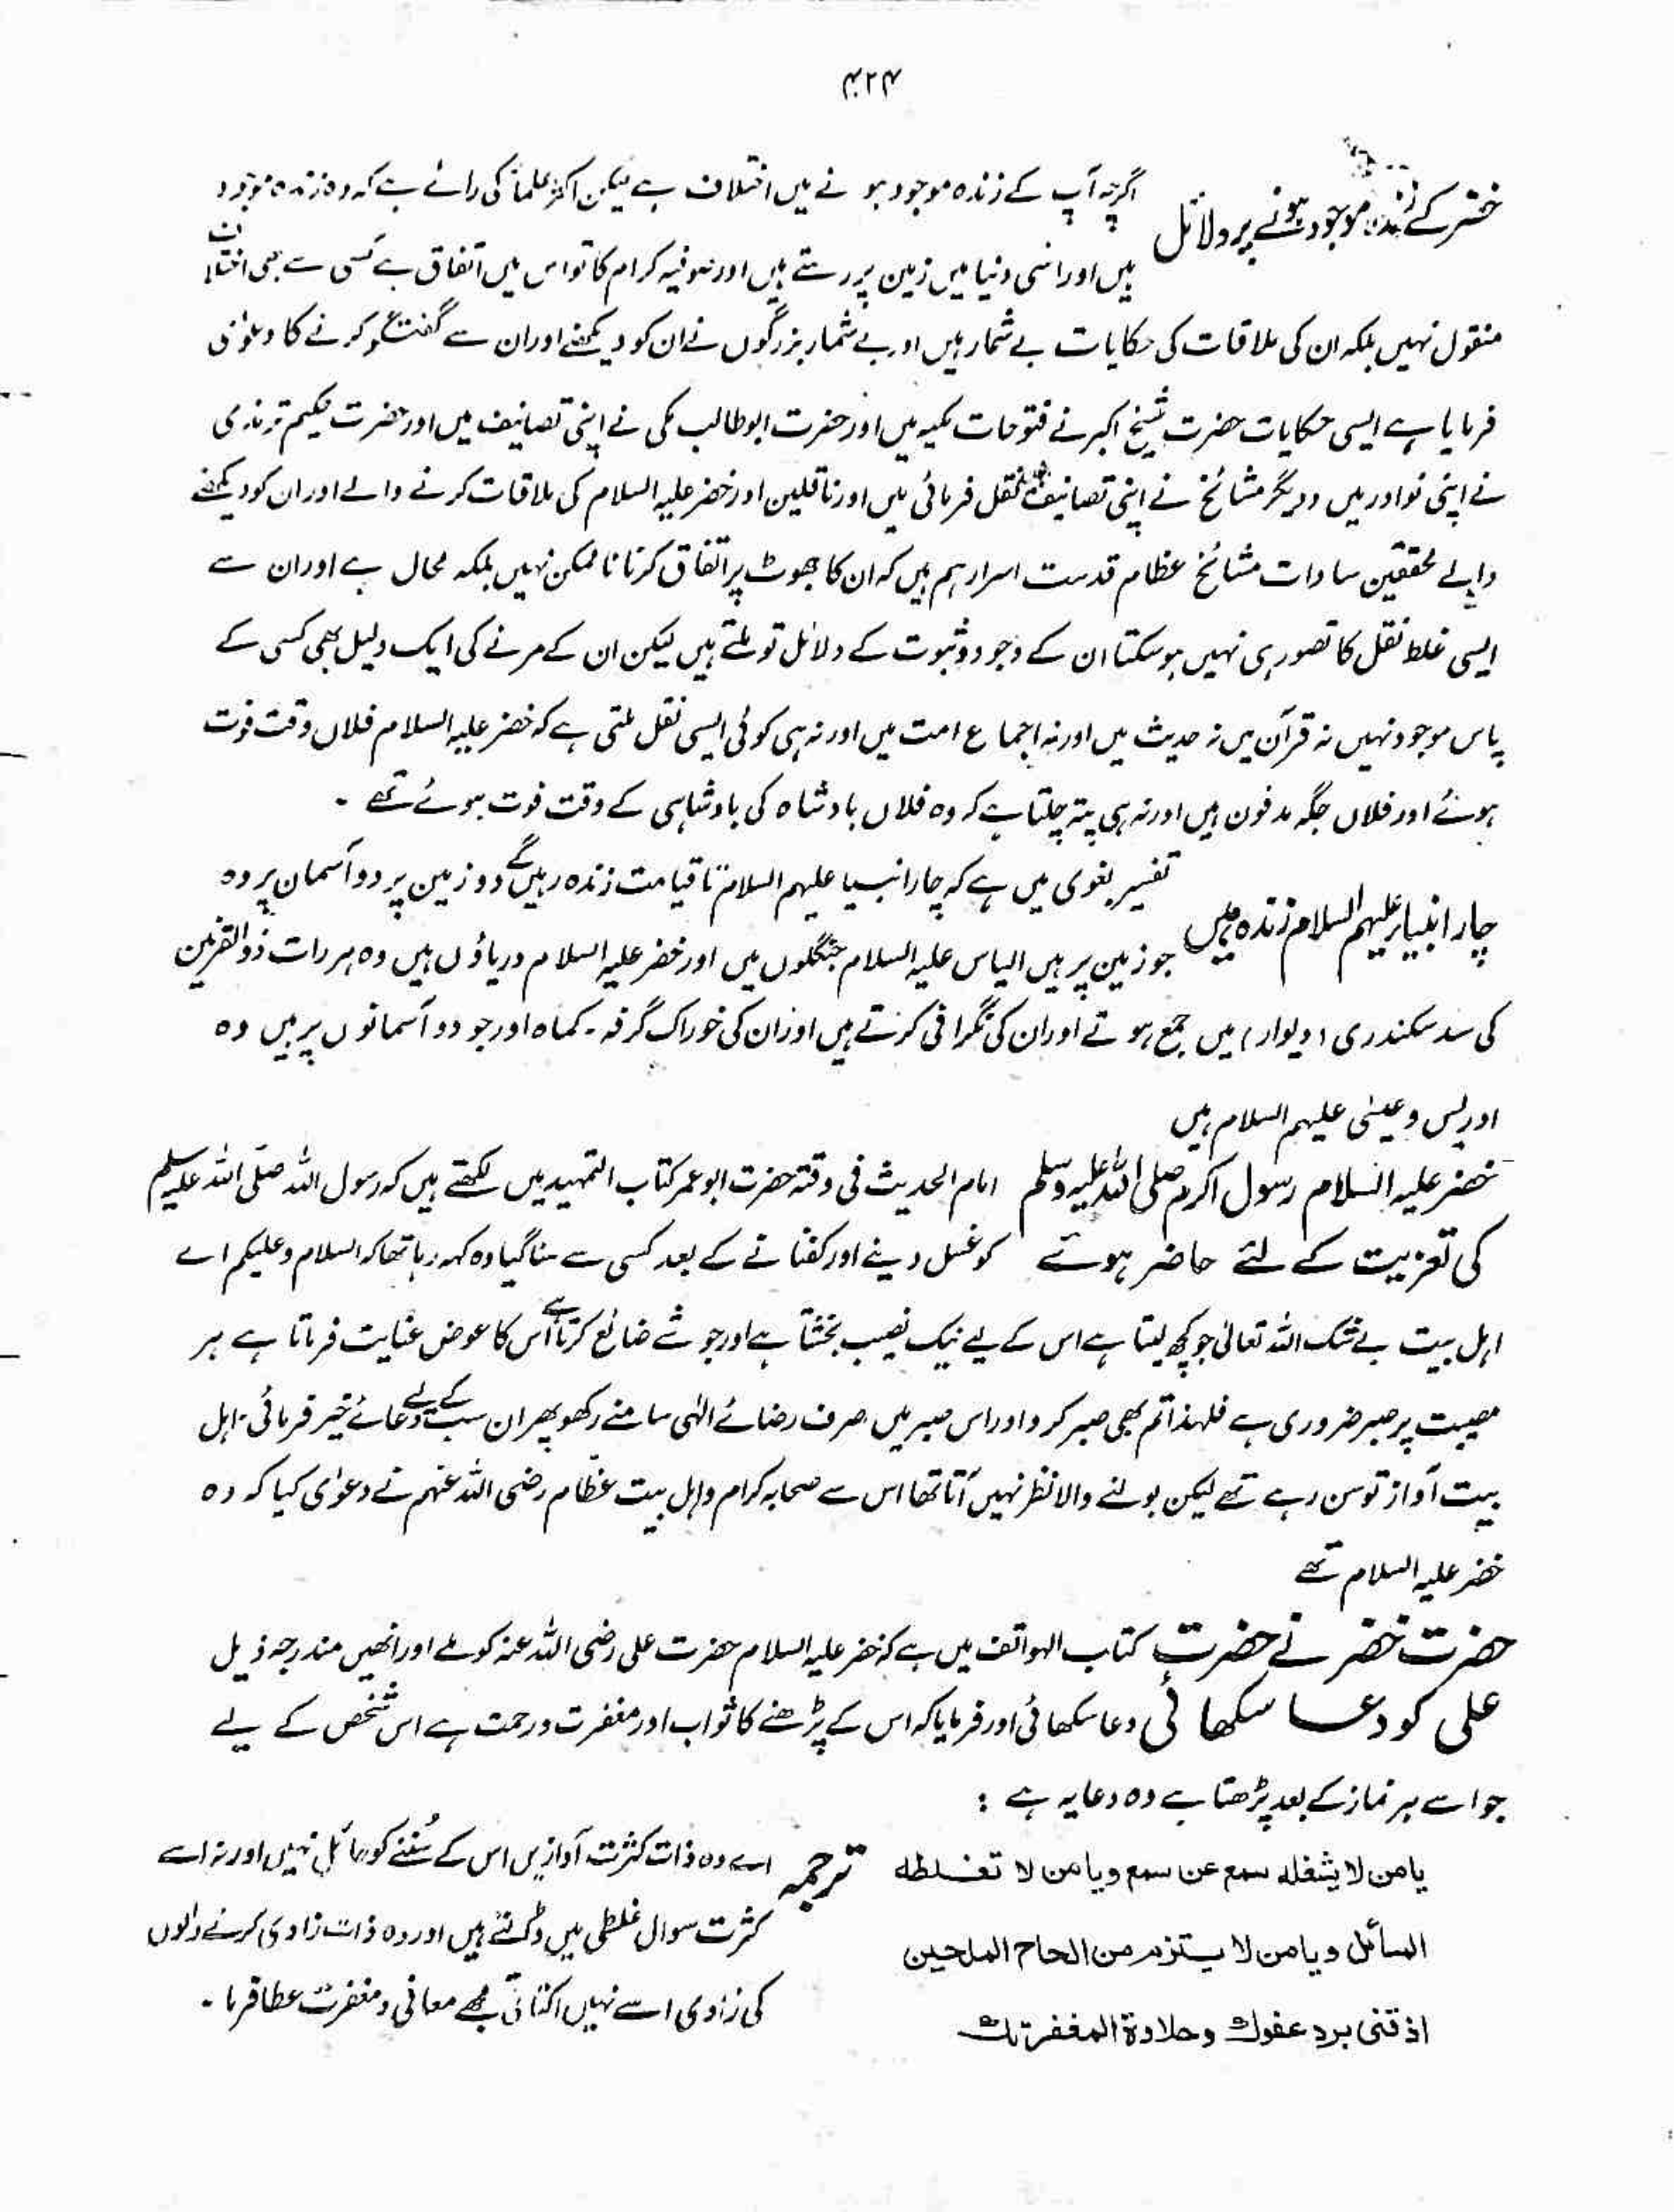 ۴۲۴
خضر کے زندہ موجود ہونے پر دلائل
اگرچہ آپ کے زندہ موجود ہو نے میں اختلاف ہے لیکن اکثر علماً کی رائے ہے کہ وہ زندہ موجود
ہیں اور اسی دنیا میں زمین پر رہتے ہیں اور صوفیہ کرام کا تو اس میں اتفاق ہے کسی سے بھی اختلاف
منقول نہیں بلکہ ان کی ملاقات کی حکایات بے شمار ہیں اور بے شمار بزرگوں نے ان کو دیکھنے اور ان سے گفتگو کرنے کا دعویٰ
فرمایا ہے ایسی حکایات حضرت شیخ اکبر نے فتوحات مکیہ میں اور حضرت ابو طالب مکی نے اپنی تصانیف میں اور حضرت حکیم ترمذی
نے اپنی نوادر میں و دیگر مشائخ نے اپنی تصانیف نقل فرمائی ہیں اور ناقلین اور خضر علیہ السلام کی ملاقات کرنے والے اور ان کو دیکھنے
والے محققین سادات مشائخ عظام قدست اسرارہم ہیں کہ ان کا جھوٹ پر اتفاق کرنا ناممکن نہیں بلکہ محال ہے اور ان سے
ایسی غلط نقل کا تصور ہی نہیں ہو سکتا ان کے وجود و ثبوت کے دلائل تو ملتے ہیں لیکن ان کے مرنے کی ایک دلیل بھی کسی کے
پاس موجود نہیں نہ قرآن میں نہ حدیث میں اور نہ اجماع امت میں اور نہ ہی کوئی ایسی نقل ملتی ہے کہ خضر علیہ السلام فلاں وقت فوت
ہوئے اور فلاں جگہ مدفون ہیں اور نہ ہی پتہ چلتا ہے کہ وہ فلاں بادشاہ کی بادشاہی کے وقت فوت ہوئے تھے ۔
چار انبیاء علیہم السلام زندہ ہیں
تفسیر بغوی میں ہے کہ چار انبیا علیہم السلام تا قیامت زندہ رہیں گے دو زمین پر دو آسمان پر وہ
جو زمین پر ہیں الیاس علیہ السلام جنگلوں میں اور خضر علیہ السلام دریاؤں میں وہ ہر رات ذوالقرنین
کی سد سکندری (دیوار) میں جمع ہوتے اور ان کی نگرانی کرتے ہیں اور ان کی خوراک گرفہ ۔ کماہ اور جو دو آسمانوں پر ہیں وہ
ادریس و عیسٰی علیہم السلام ہیں
خضر علیہ السلام رسول اکرم صلی اللہ علیہ وسلم
کی تعزیت کے لئے حاضر ہوئے
امام الحدیث فی وقتہ حضرت ابو عمر کتاب التمہید میں لکھتے ہیں کہ رسول اللہ صلی اللہ علیہ وسلم
کو غسل دینے اور کفنانے کے بعد کسی سے سنا گیا وہ کہہ رہا تھا کہ السلام وعلیکم اے
اہل بیت بے شک اللہ تعالیٰ جو کچھ لیتا ہے اس کے لیے نیک نصیب بخشتا ہے اور جو شے ضائع کرتا ہے اس کا عوض عنایت فرماتا ہے ہر
مصیبت پر صبر ضروری ہے فلہذا تم بھی صبر کرو اور اس صبر میں صرف رضائے الٰہی سامنے رکھو پھر ان سب کے لیے دعائے خیر فرمائی ۔ اہل
بیت آواز تو سن رہے تھے لیکن بولنے والا نظر نہیں آتا تھا اس سے صحابہ کرام و اہل بیت عظام رضی اللہ عنہم نے دعوٰی کیا کہ وہ
خضر علیہ السلام تھے
حضرت خضر نے حضرت
علی کو دعا سکھائی
کتاب الہواتف میں ہے کہ خضر علیہ السلام حضرت علی رضی اللہ عنہ کو ملے اور انھیں مندرجہ ذیل
دعا سکھائی اور فرمایا کہ اس کے پڑھنے کا ثواب اور مغفرت و رحمت ہے اس شخص کے لیے
جو اسے ہر نماز کے بعد پڑھتا ہے وہ دعا یہ ہے :
یا من لا یشغلہ سمع عن سمع و یا من لا تغلطه
السائل و یا من لا یستزمر من الحاح الملحین
اذقنی برد عفوك وحلاوة المغفرتك
ترجمہ
اے وہ ذات کثرت آوازیں اس کے سُننے کو حائل نہیں اور نہ اسے
کثرت سوال غلطی میں ڈالتے ہیں اور وہ ذات زاوی کرنے والوں
کی زاوی اسے نہیں اکتاتی مجھے معافی و مغفرت عطا فرما ۔